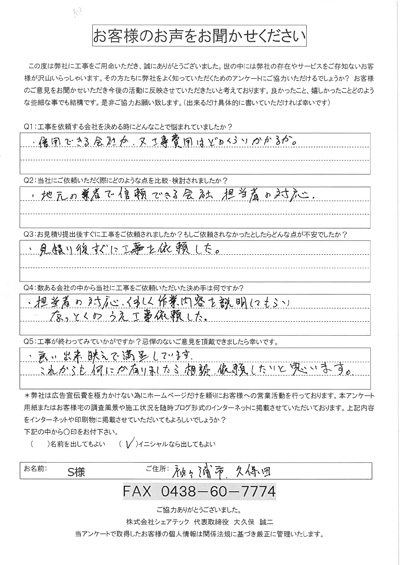 お客様のお声をお聞かせください
この度は弊社に工事をご用命いただき、誠にありがとうございました。世の中には弊社の存在やサービスをご存知ないお客
様が沢山いらっしゃいます。その方たちに弊社をよく知っていただくためのアンケートにご協力いただけるでしょうか? お客様
のご意見をお聞かせいただき今後の活動に反映させていただきたいと考えております。良かったこと、嬉しかったことどのよう
な些細な事でも結構です。是非ご協力お願い致します。(出来るだけ具体的に書いていただければ幸いです)
Q1:工事を依頼する会社を決める時にどんなことで悩まれていましたか?
・信用できる会社か、又工事費用はどのくらいかかるか。
Q2:当社にご依頼いただく際にどのような点を比較・検討されましたか?
・地元の業者で信頼できる会社 担当者の対応.
Q3:お見積り提出後すぐに工事をご依頼されましたか?もしご依頼されなかったとしたらどんな点が不安でしたか?
・見積り後すぐに工事を依頼した。
Q4:数ある会社の中から当社に工事をご依頼いただいた決め手は何ですか?
・担当者の対応、くわしく作業内容を説明してもらい
なっとくのうえ工事依頼した。
Q5:工事が終わってみていかがですか?忌憚のないご意見を頂戴できましたら幸いです。
・良い出来映えで満足しています。
これからも何にかありましたら相談、依頼したいと思います。
*弊社は広告宣伝費を極力かけない為にホームページだけを頼りにお客様への営業活動を行っております。本アンケート
用紙またはお客様宅の調査風景や施工状況を随時ブログ形式のインターネットに掲載させていただいております。上記内容
をインターネットや印刷物に掲載させていただいてもよろしいでしょうか?
下記の中から〇印をお付下さい。
( )名前を出してもよい (✓)イニシャルなら出してもよい
お名前: S様 ご住所: 袖ヶ浦市 久保田
FAX 0438-60-7774
ご協力ありがとうございました。
株式会社シェアテック 代表取締役 大久保 誠二
当アンケートで取得したお客様の個人情報は関係法規に基づき厳正に管理いたします。